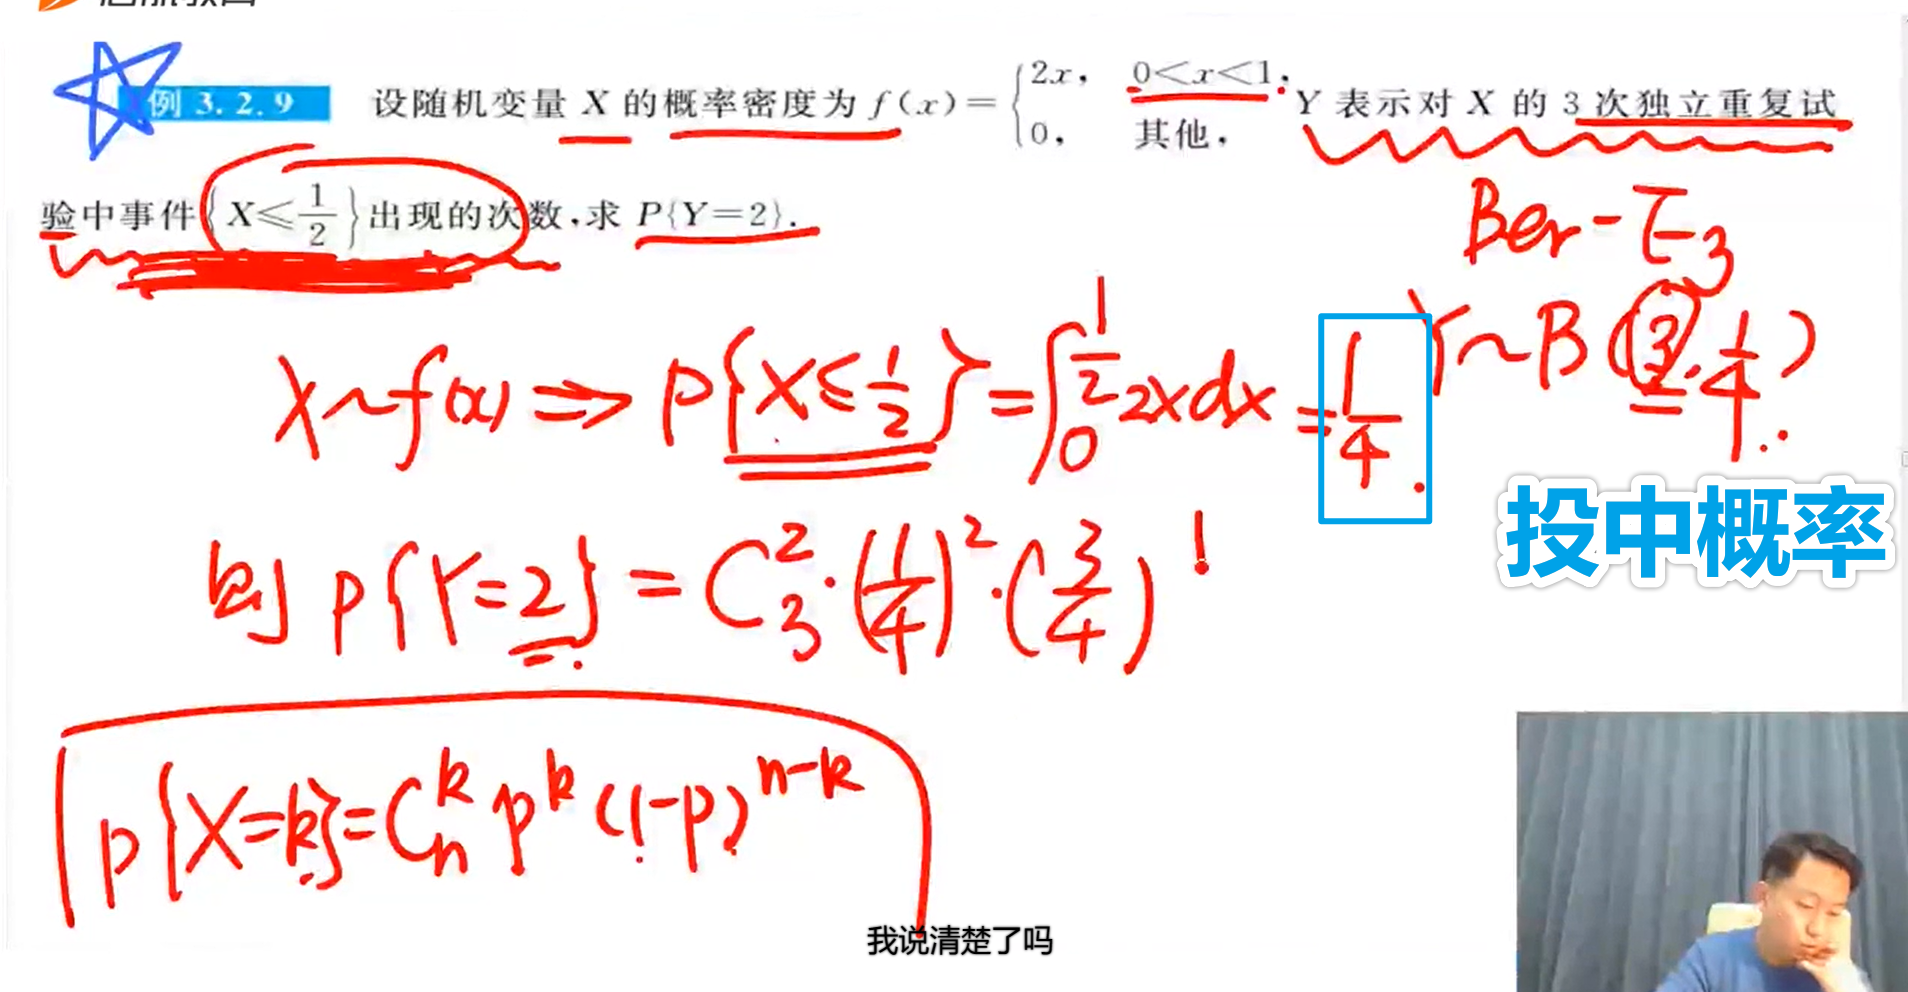 例 3.2.9 设随机变量 X 的概率密度为 f(x)={2x, 0<x<1; 0, 其他, Y 表示对 X 的 3 次独立重复试
验中事件{X≤1/2}出现的次数,求 P{Y=2}.
Ber-E3
X~f(x) ⇒ P{X≤1/2}=∫_0^{1/2} 2xdx=1/4.
Y~B(3, 1/4)
投中概率
则 P{Y=2}=C_3^2·(1/4)^2·(3/4)^1
P{X=k}=C_n^k p^k (1-p)^{n-k}
我说清楚了吗